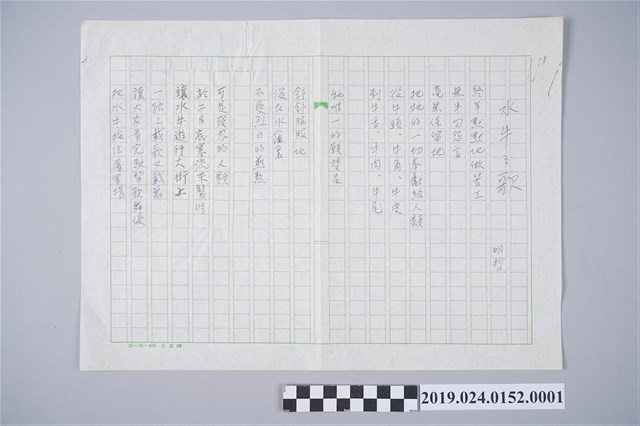 水牛之歌
明哲
終年默默地做苦工
無半句怨言
毫無保留地
把牠的一切奉獻給人類
從牛頭、牛角、牛皮
到牛舌、牛肉、牛尾
牠唯一的願望是
舒舒服服地
浸在水漥裏
不受烈日的煎熬
可是殘忍的人類
於二月底寒流來襲時
讓水牛遊行大街上
一路上載歌又載舞
讓大家看完熱鬧歌舞後
把水牛拖往屠宰場
20×20=400
2019.024.0152.0001